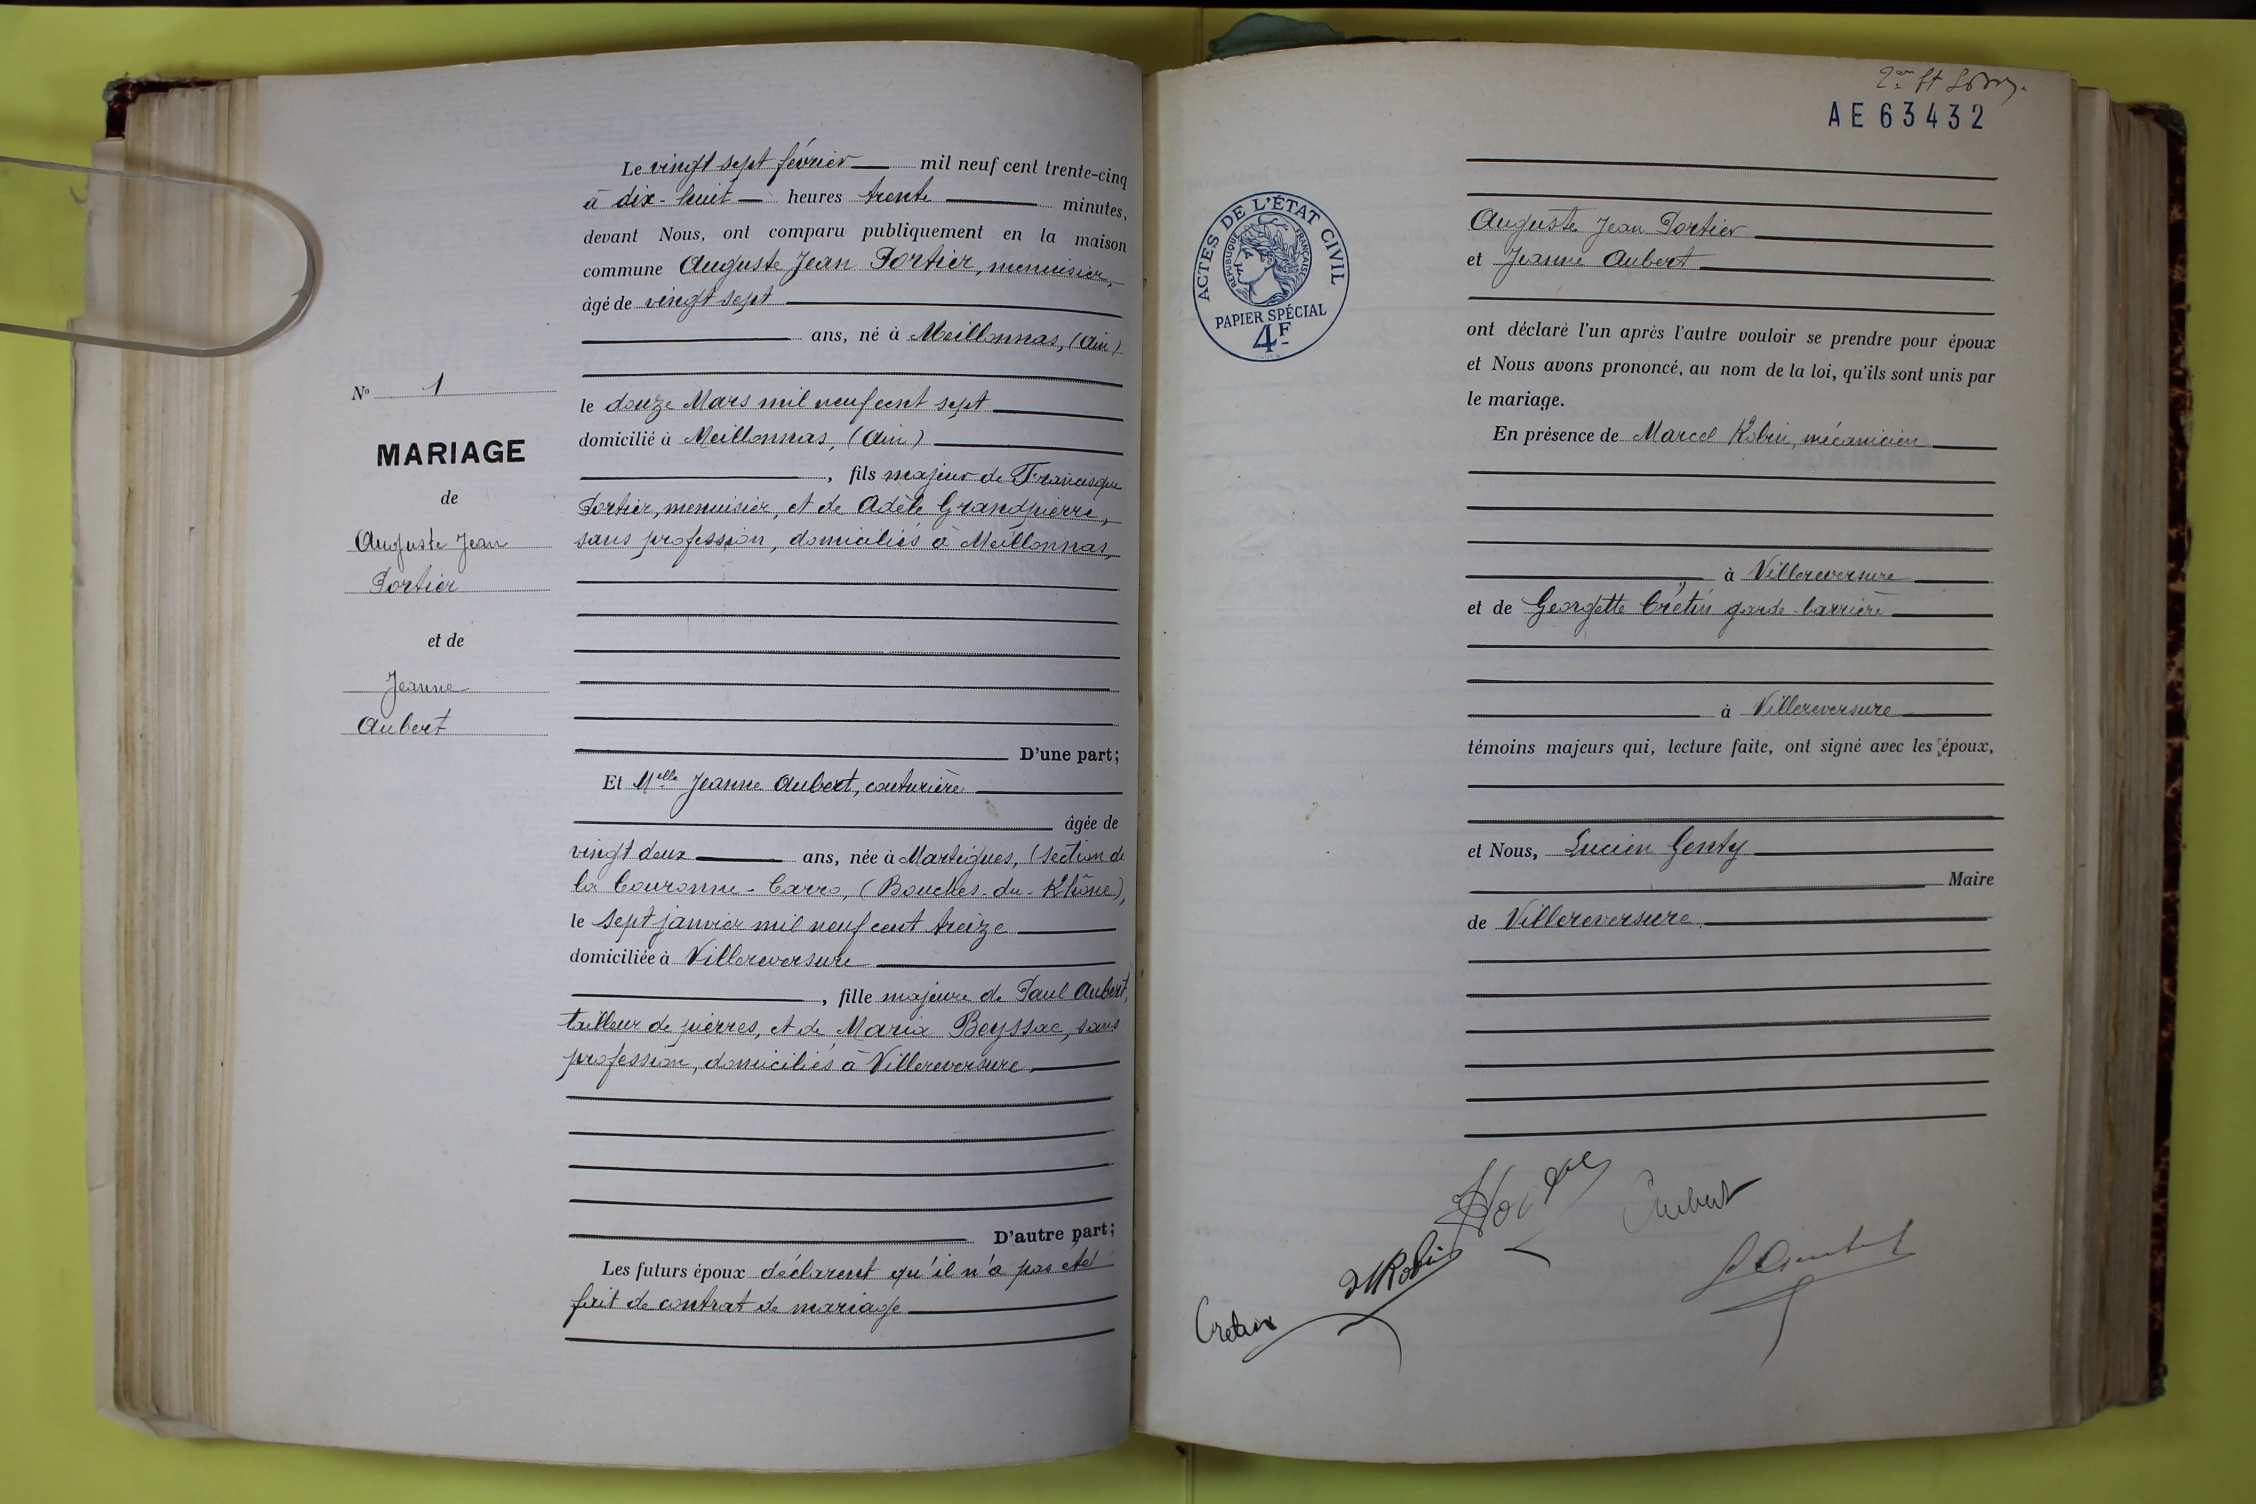 Le vingt sept février mil neuf cent trente-cinq
à dix-huit heures trente minutes,
devant Nous, ont comparu publiquement en la maison
commune Auguste Jean Portier, menuisier,
âgé de vingt sept
ans, né à Meillonnas, (Ain)
le douze Mars mil neuf cent sept
domicilié à Meillonnas, (Ain)
, fils majeur de Francisque
Portier, menuisier, et de Adèle Grandpierre,
sans profession, domiciliés à Meillonnas,
D'une part;
Et Melle Jeanne Aubert, couturière
âgée de
vingt deux ans, née à Martigues, (section de
la Couronne-Carro, (Bouches-du-Rhône),
le sept janvier mil neuf cent treize
domiciliée à Villereversure
, fille majeure de Paul Aubert,
tailleur de pierres, et de Maria Beyssac, sans
profession, domiciliés à Villereversure.
D'autre part;
Les futurs époux déclarent qu'il n'a pas été
fait de contrat de mariage
No 1
MARIAGE
de
Auguste Jean
Portier
et de
Jeanne
Aubert
AE 63432
ACTES DE L'ÉTAT CIVIL
RÉPUBLIQUE FRANÇAISE
PAPIER SPÉCIAL
4F
Auguste Jean Portier
et Jeanne Aubert
ont déclaré l'un après l'autre vouloir se prendre pour époux
et Nous avons prononcé, au nom de la loi, qu'ils sont unis par
le mariage.
En présence de Marcel Robin, mécanicien
à Villereversure
et de Georgette Crétin garde-barrière
à Villereversure
témoins majeurs qui, lecture faite, ont signé avec les époux,
et Nous, Lucien Genty
Maire
de Villereversure.
Aubert
M Robin
Cretin